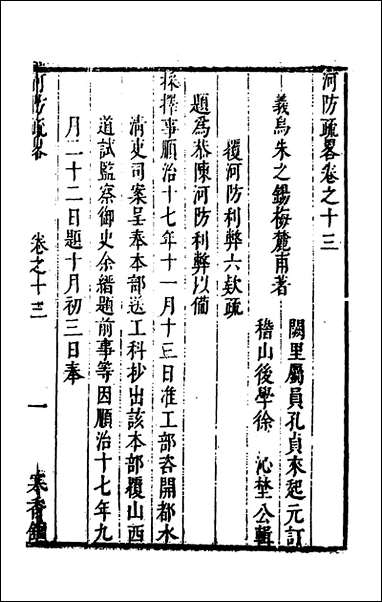 河防疏畧卷之十三
義烏朱之錫梅麓甫著
闕里屬員孔貞來起元訂
稽山後學徐　沁埜公輯
覆河防利弊六欵疏
題爲恭陳河防利弊以備
採擇事順治十七年十一月十三日准工部咨開都水
清吏司案呈奉本部送工科抄出該本部覆山西
道試監察御史余縉題前事等因順治十七年九
月二十二日題十月初三日奉
河防疏畧　卷之十三　一　寒香館